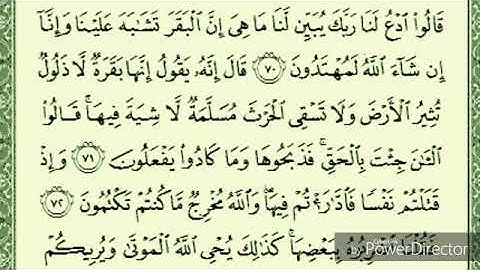 قَالُوا۟ ٱدْعُ لَنَا رَبَّكَ يُبَيِّن لَّنَا مَا هِىَ إِنَّ ٱلْبَقَرَ تَشَٰبَهَ عَلَيْنَا وَإِنَّآ
إِن شَآءَ ٱللَّهُ لَمُهْتَدُونَ ٧٠ قَالَ إِنَّهُۥ يَقُولُ إِنَّهَا بَقَرَةٌ لَّا ذَلُولٌ
تُثِيرُ ٱلْأَرْضَ وَلَا تَسْقِى ٱلْحَرْثَ مُسَلَّمَةٌ لَّا شِيَةَ فِيهَا ۚ قَالُوا۟
ٱلْـَٰٔنَ جِئْتَ بِٱلْحَقِّ ۚ فَذَبَحُوهَا وَمَا كَادُوا۟ يَفْعَلُونَ ٧١ وَإِذْ
قَتَلْتُمْ نَفْسًا فَٱدَّٰرَْٰٔتُمْ فِيهَا ۖ وَٱللَّهُ مُخْرِجٌ مَّا كُنتُمْ تَكْتُمُونَ ٧٢
بِبَعْضِهَا ۚ كَذَٰلِكَ يُحْىِ ٱللَّهُ ٱلْمَوْتَىٰ وَيُرِيكُمْ
PowerDirector